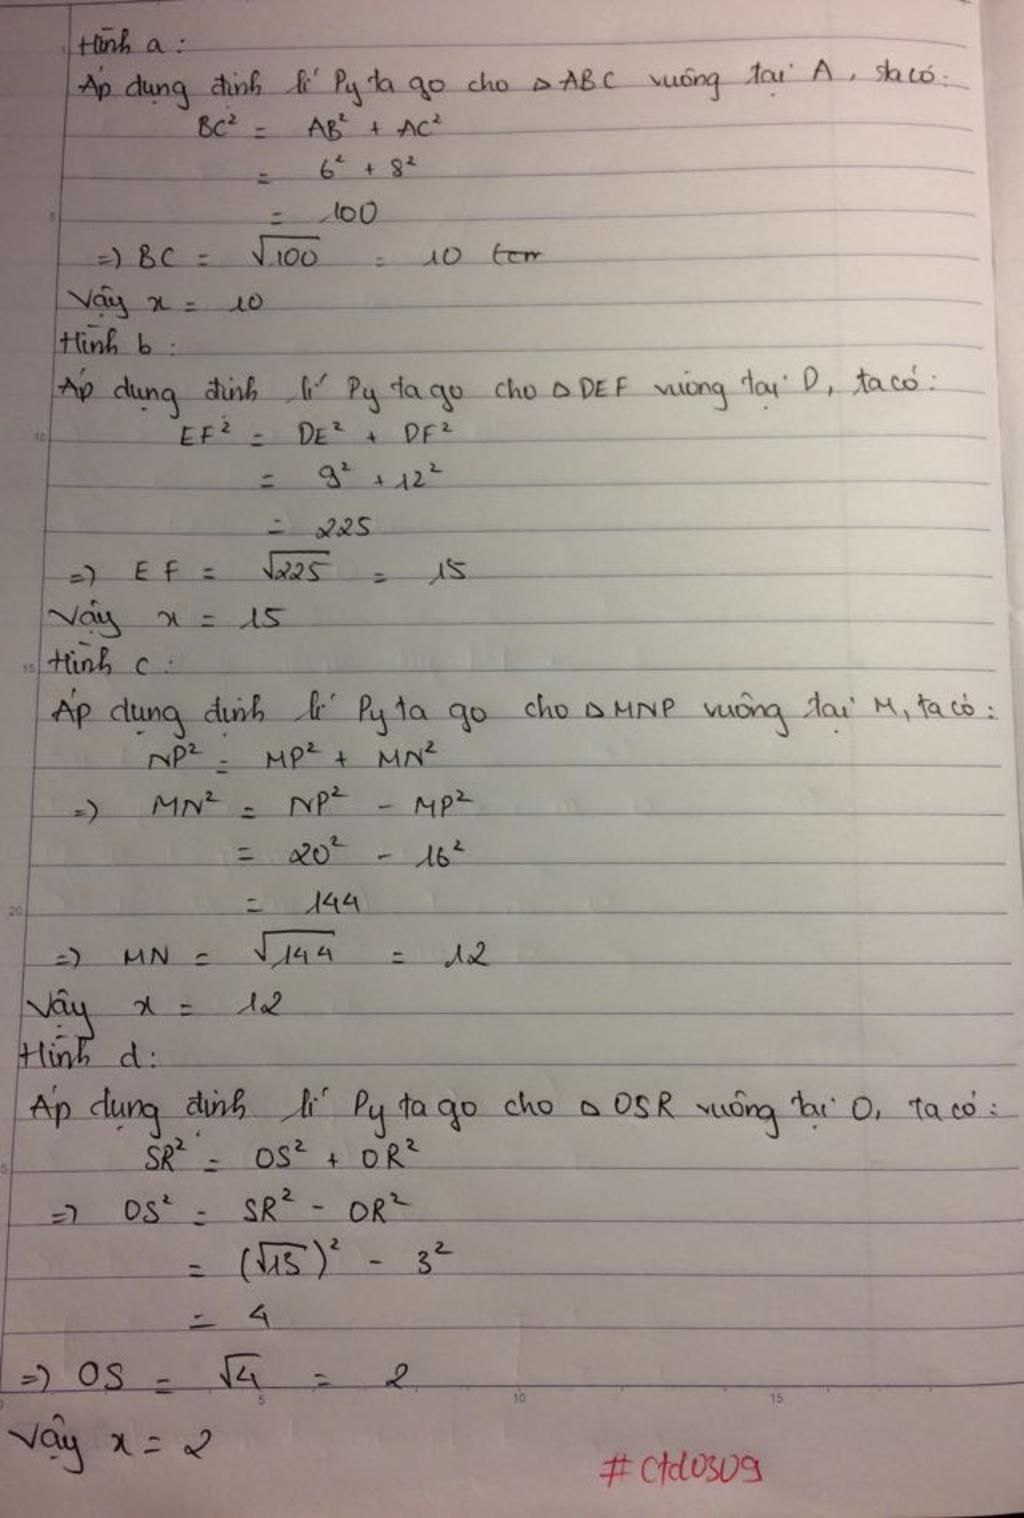 Hình a :
Áp dụng định lí Py ta go cho △ ABC vuông tại A, ta có:
BC² = AB² + AC²
= 6² + 8²
= 100
=) BC = √100 = 10
Vậy x = 10
Hình b :
Áp dụng định lí Py ta go cho △ DEF vuông tại D, ta có:
EF² = DE² + DF²
= 9² + 12²
= 225
=) EF = √225 = 15
Vậy x = 15
Hình c :
Áp dụng định lí Py ta go cho △ MNP vuông tại M, ta có:
NP² = MP² + MN²
=) MN² = NP² - MP²
= 20² - 16²
= 144
=) MN = √144 = 12
Vậy x = 12
Hình d:
Áp dụng định lí Py ta go cho △ OSR vuông tại O, ta có:
SR² = OS² + OR²
=) OS² = SR² - OR²
= (√13)² - 3²
= 4
=) OS = √4 = 2
Vậy x = 2
#ctd0309
5
10
15
20
5
0
5
10
15